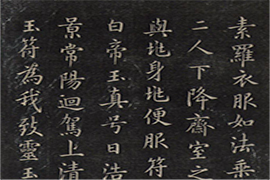 素羅衣服如法乘
二人下降齋室之
與地身地便服符
白帝玉真号曰浩
景常陽迴駕上清
玉符為我致靈玉